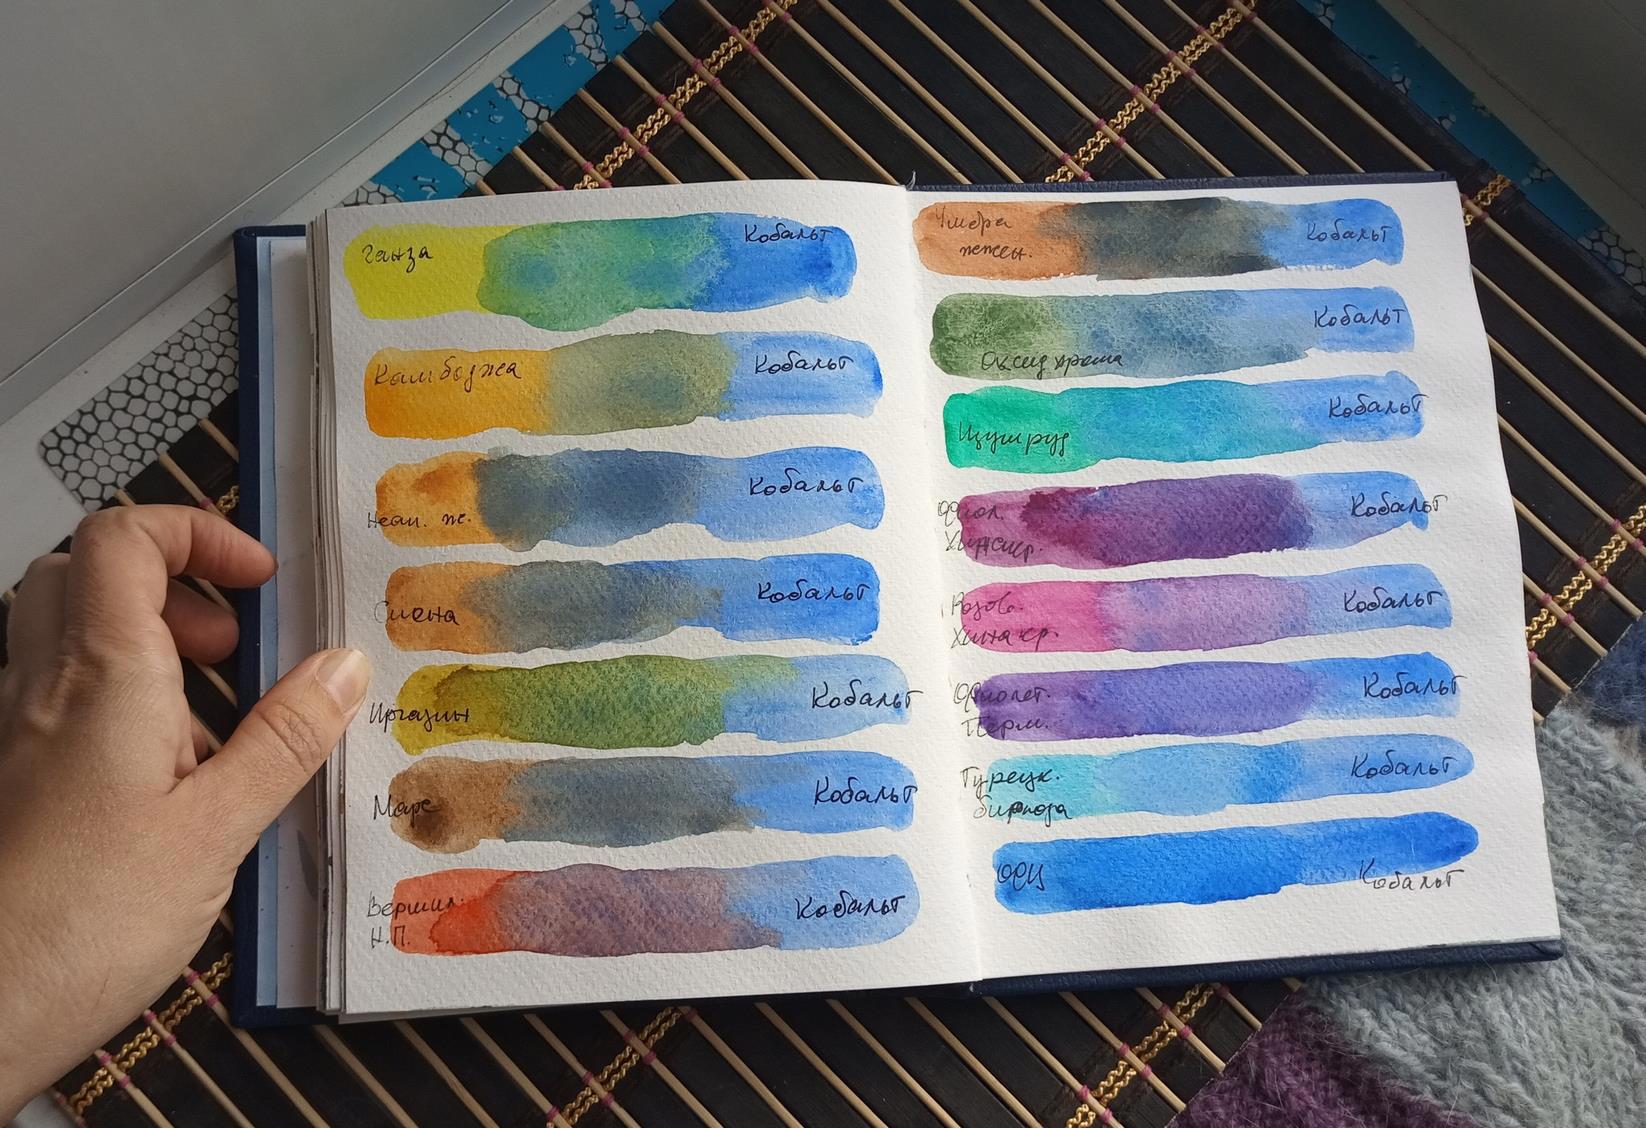 Ганза Кобальт
Камбоджа Кобальт
Неап. ж. Кобальт
Сиена Кобальт
Иргазин Кобальт
Марс Кобальт
Вермил. Кобальт
Н.П.
Умбра Кобальт
жжен.
Оксид хрома Кобальт
Изумруд Кобальт
Фиол. Кобальт
Хинакр.
Розов. Кобальт
Хинакр.
Фиолет. Кобальт
Перм.
Турецк. Кобальт
бирюза
ФЦ Кобальт